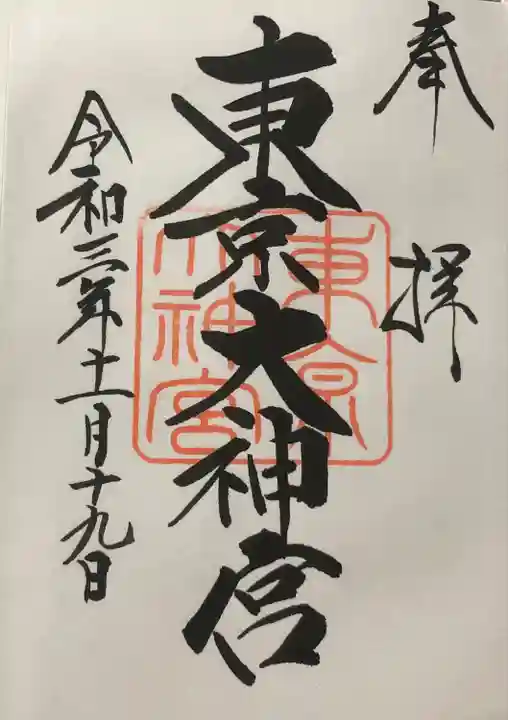 奉拝
東京大神宮
東京
大神宮
令和三年十一月十九日